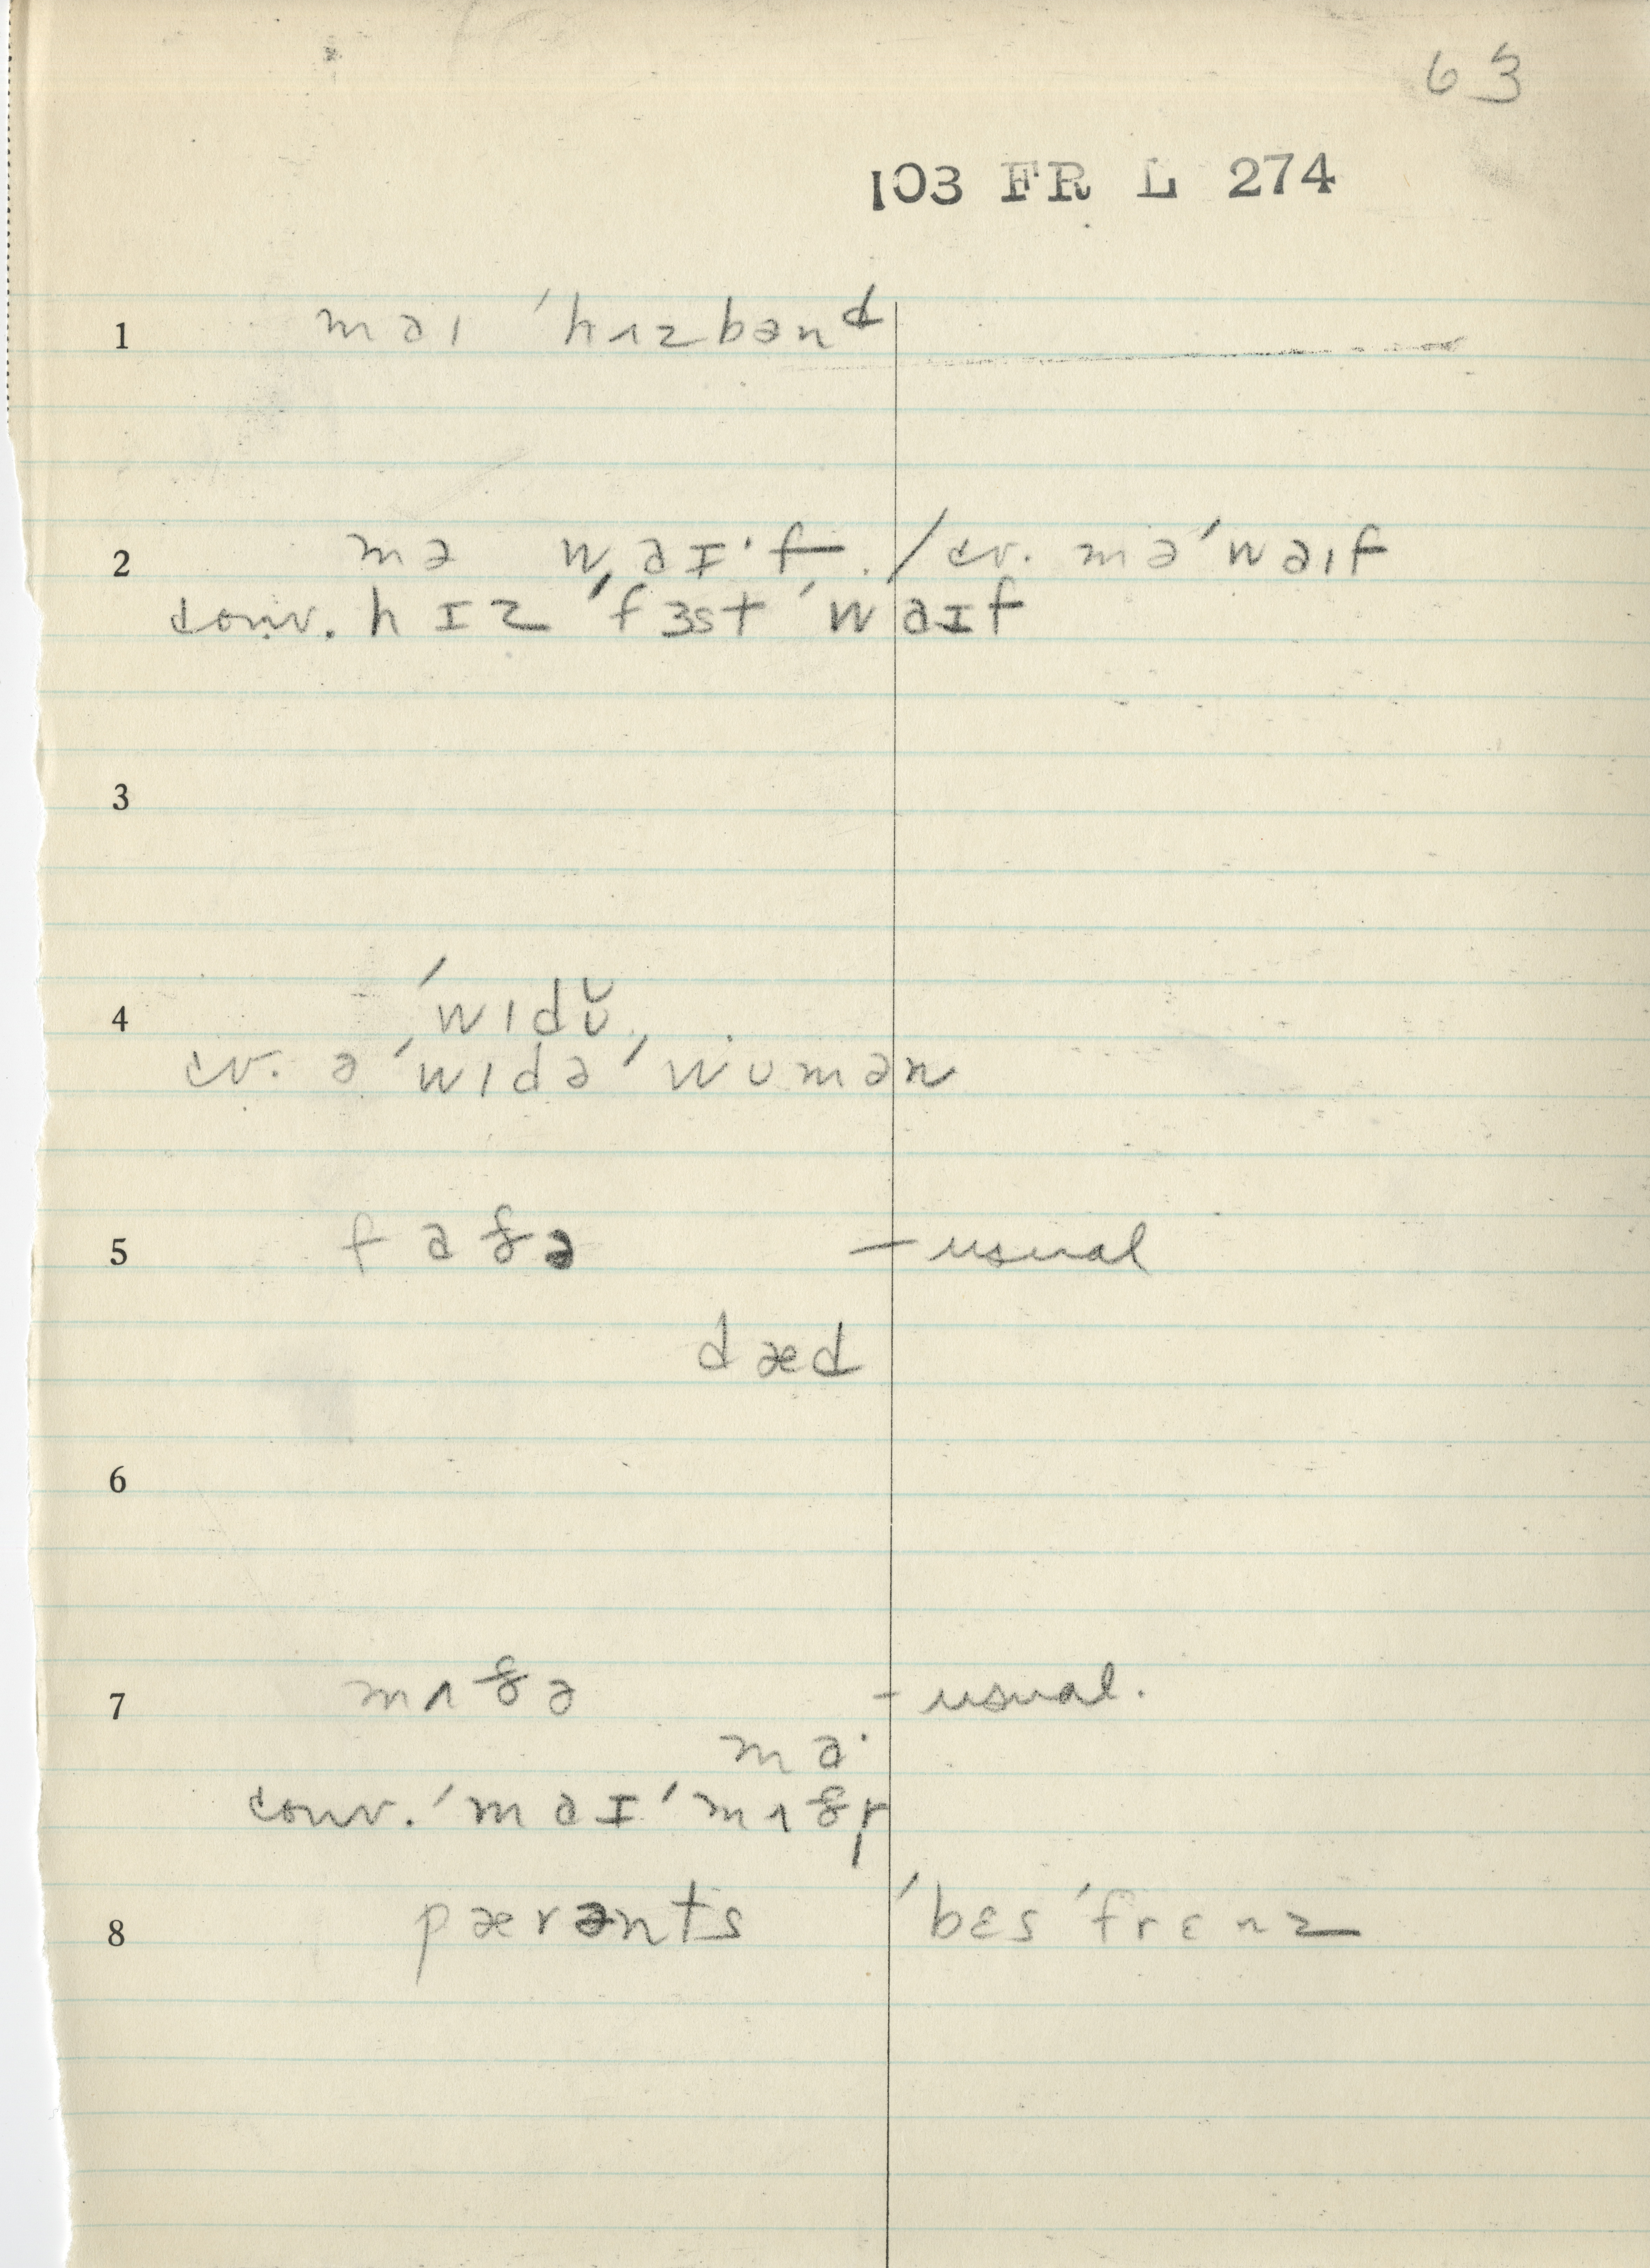 63
103 FR L 274
1 maɪ ˈhʌzbənᵈ
2 ma waɪ·f / cv. ma ˈwaɪf
conv. hɪz ˈfɜst ˈwaɪf
3
4 ˈwɪdʊ̆
cv. ə ˈwɪdə ˈwʊmən
5 faðə – usual
dæd
6
7 mʌðə – usual.
ma·
conv. ˈmaɪ ˈmʌðɚ
8 pærənts ˈbɛs ˈfrɛnz